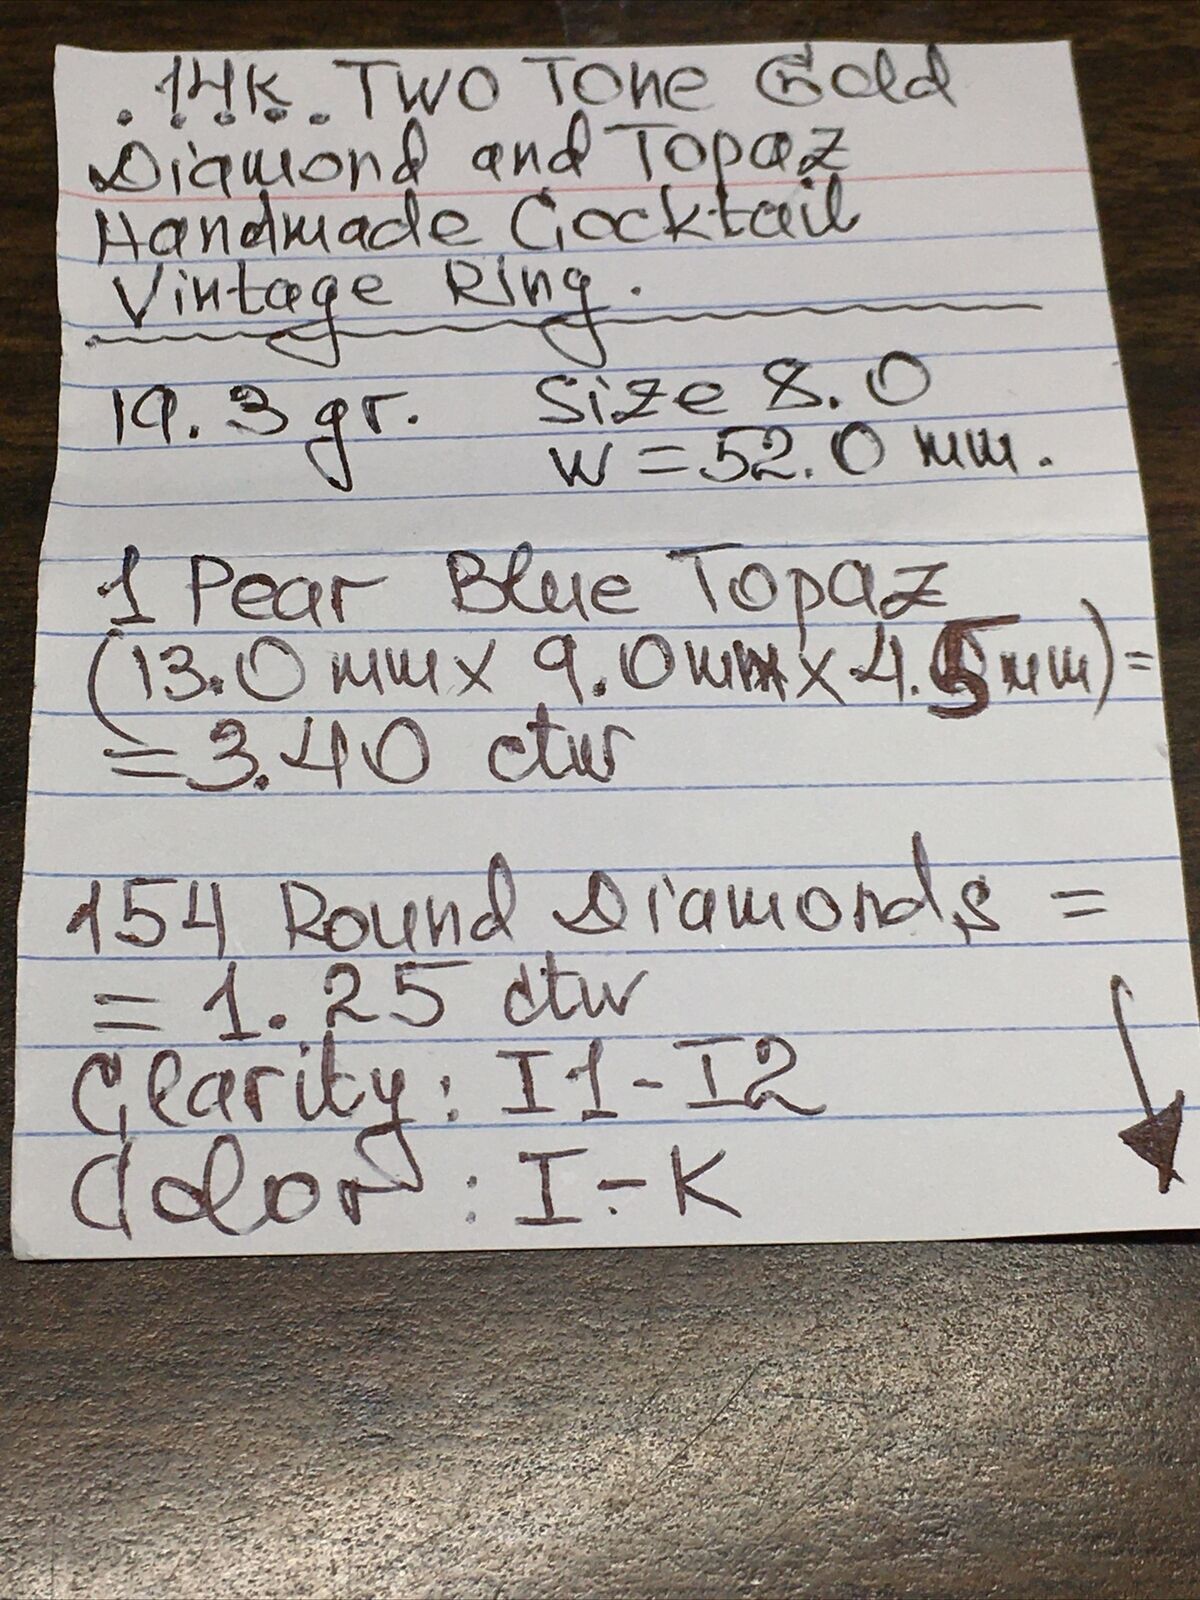 14K. Two Tone Gold
Diamond and Topaz
Handmade Cocktail
Vintage Ring.
19.3 gr. Size 8.0
W = 52.0 mm.
1 Pear Blue Topaz
(13.0 mm x 9.0 mm x 4.5 mm) =
= 3.40 ctw
154 Round Diamonds =
= 1.25 ctw
Clarity: I1 - I2
Color: I - K